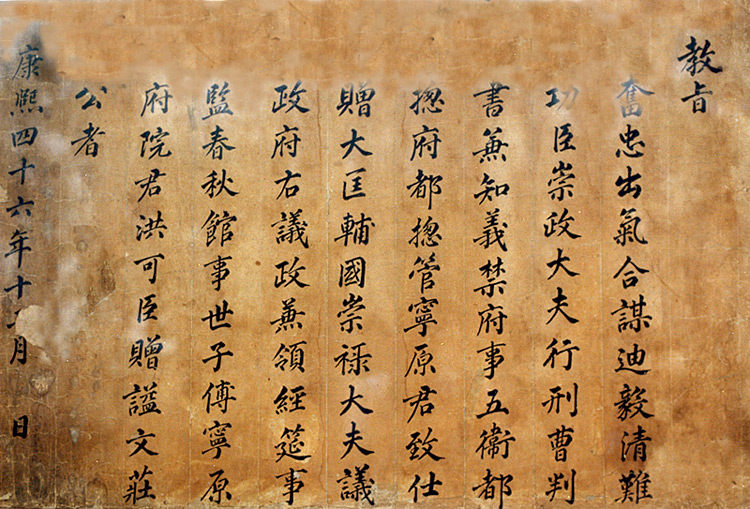 教旨
奮忠出氣合謀迪毅清難
功臣崇政大夫行刑曹判
書兼知義禁府事五衛都
摠府都摠管寧原君致仕
贈大匡輔國崇祿大夫議
政府右議政兼領經筵事
監春秋館事世子傅寧原
府院君洪可臣贈諡文莊
公者
康熙四十六年十二月 日